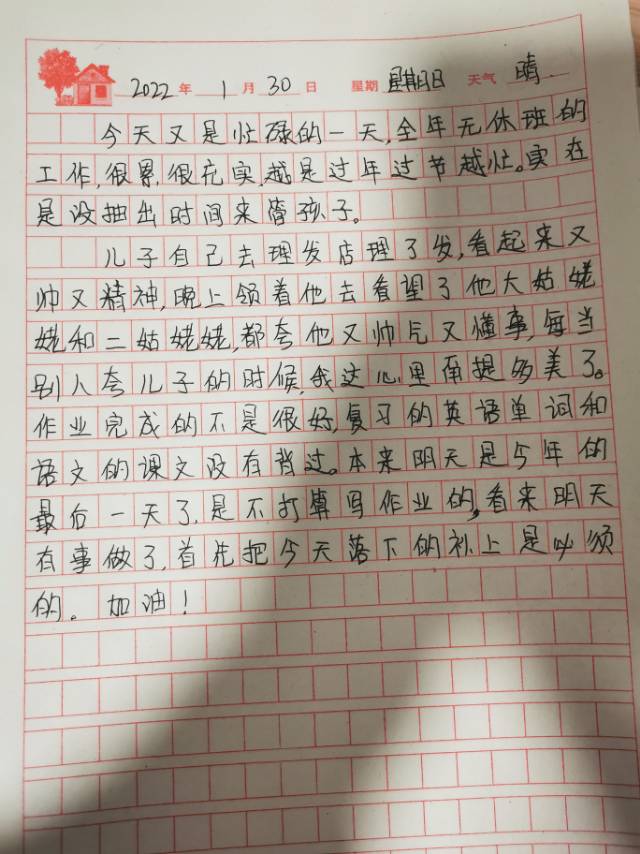 2022年 1月30日 星期 星期日 天气 晴.
今天又是忙碌的一天,全年无休班的
工作,很累很充实,越是过年过节越忙。实在
是没抽出时间来管孩子。
儿子自己去理发店理了发,看起来又
帅又精神,晚上领着他去看望了他大姑姥
姥和二姑姥姥,都夸他又帅气又懂事,每当
别人夸儿子的时候,我这心里甭提多美了。
作业完成的不是很好,复习的英语单词和
语文的课文没有背过。本来明天是今年的
最后一天了,是不打算写作业的,看来明天
有事做了,首先把今天落下的补上是必须
的。加油!